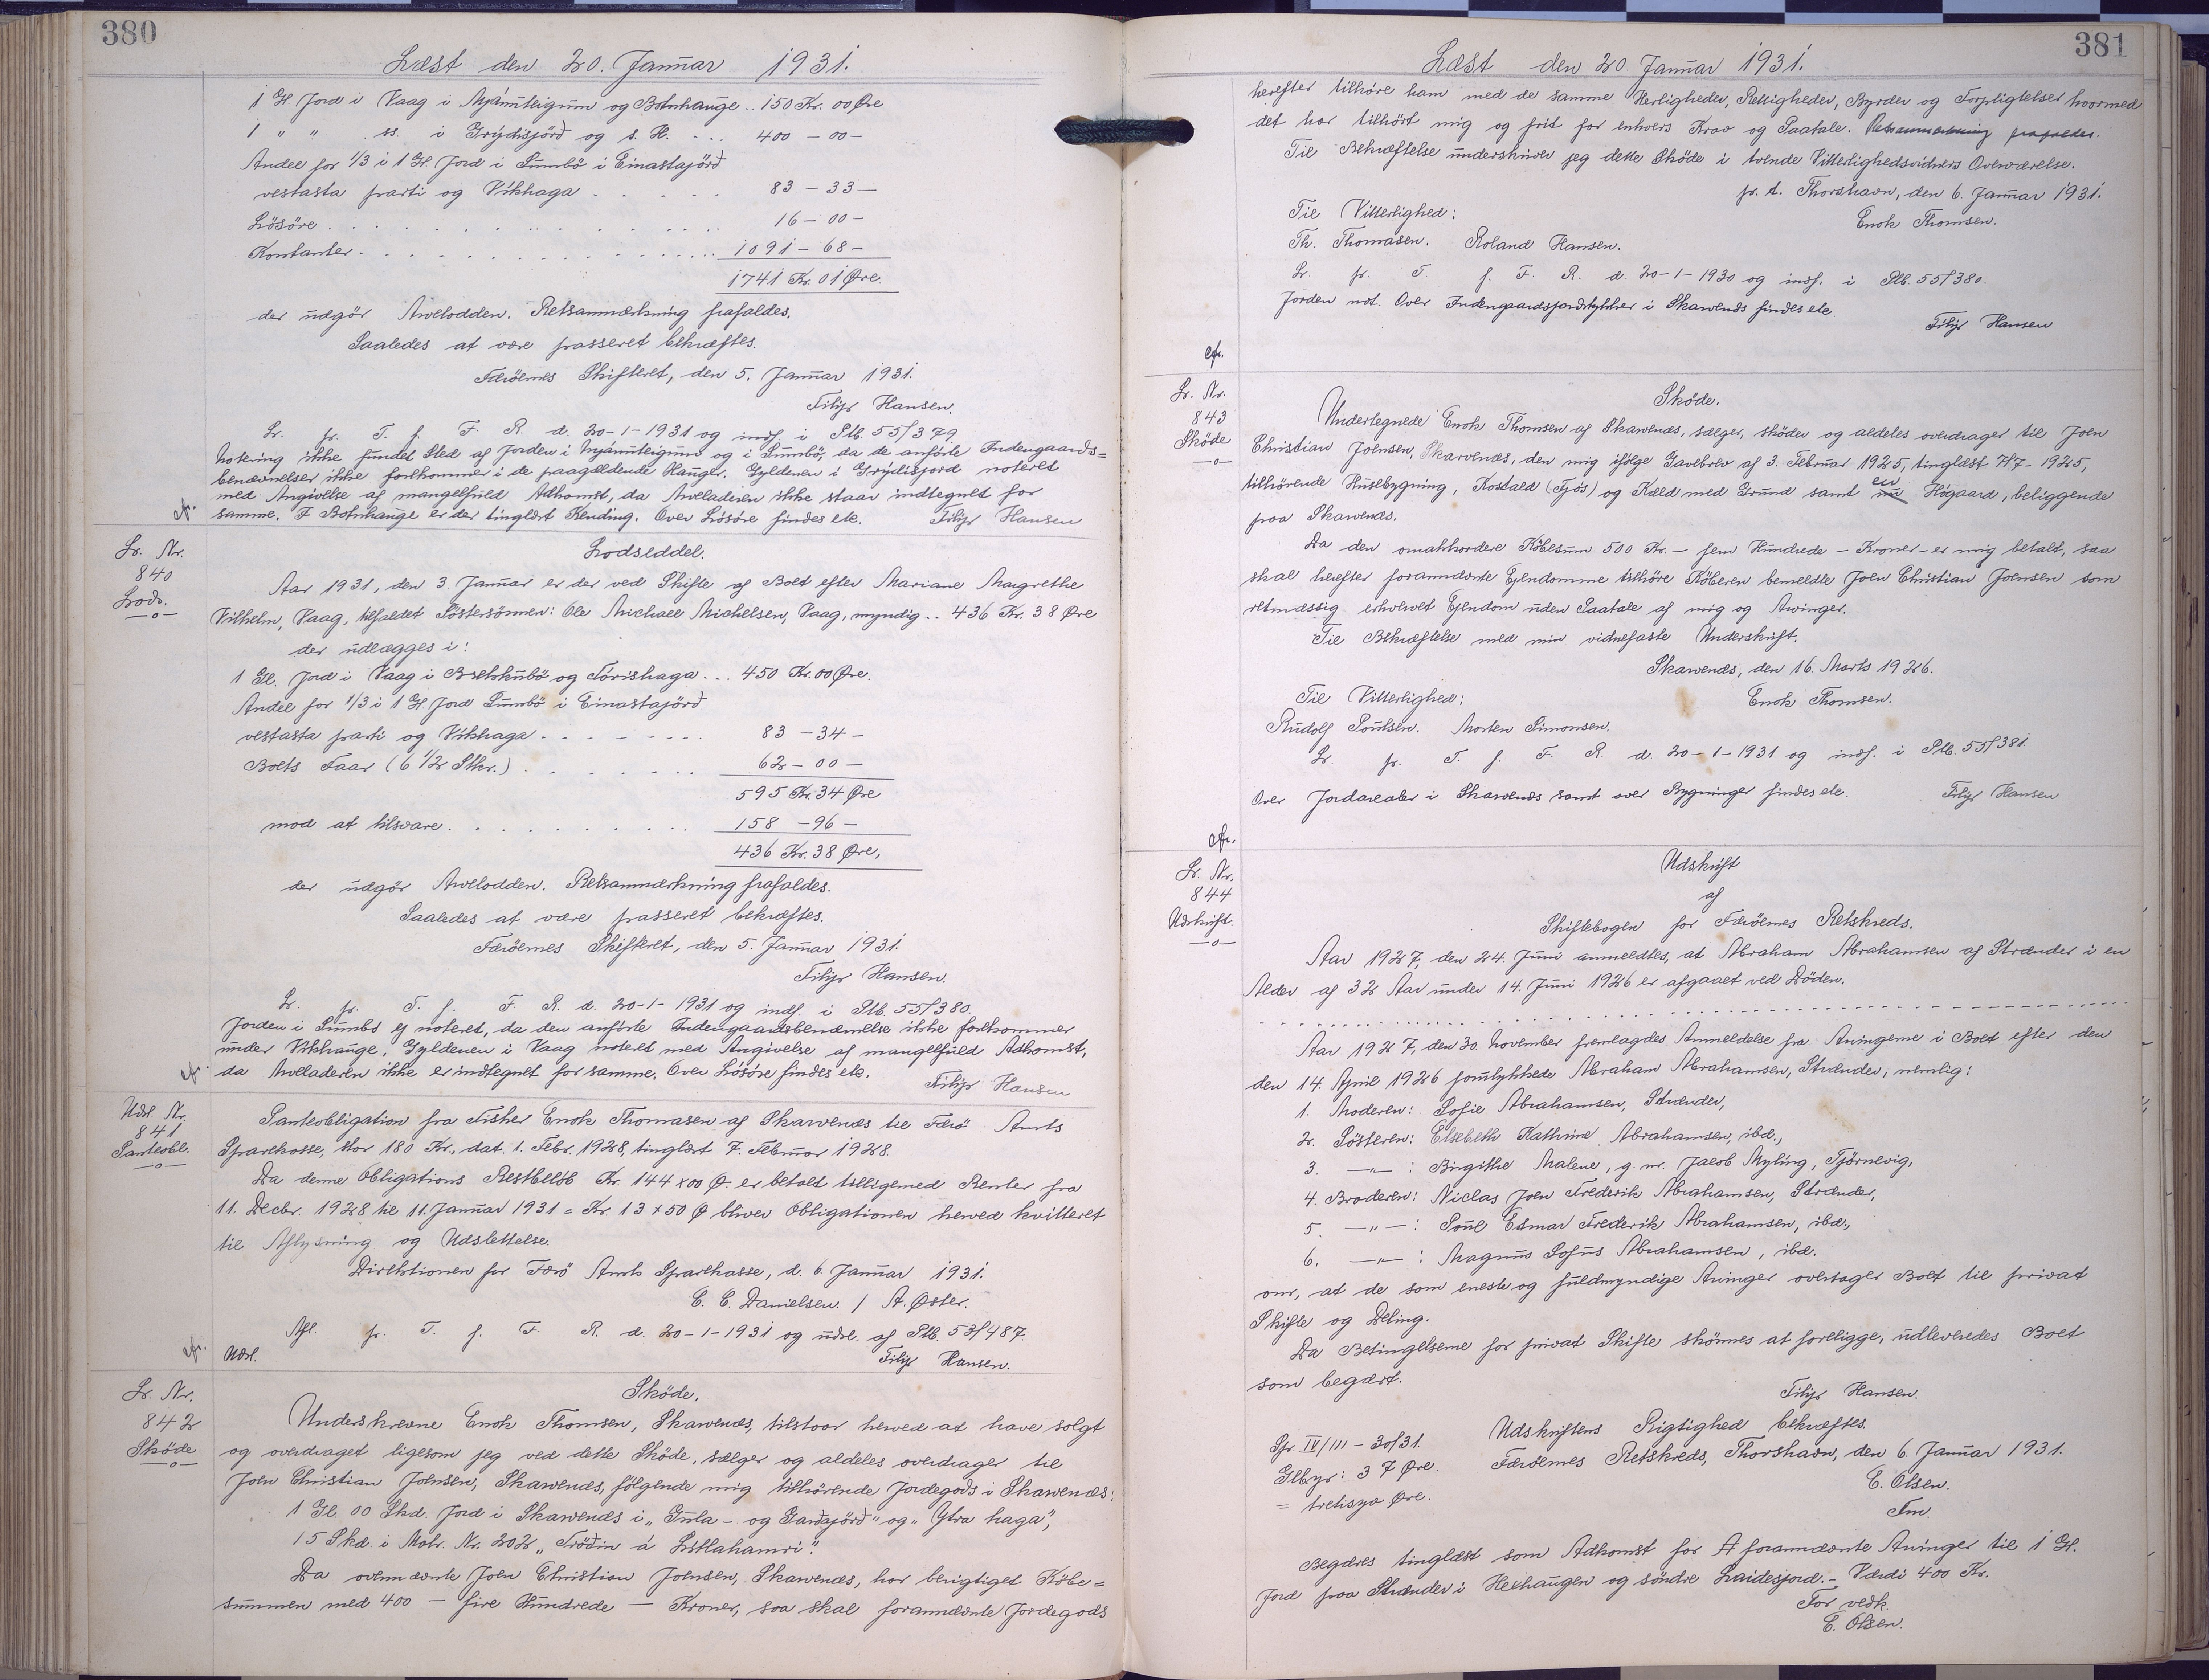 380
Læst den 20. Januar 1931.
1 Gl. Jord i Vaag i Nýánúteigum og Botnhauge .. 150 Kr. 00 Øre
1 " " ss. i Grýdisjörð og s. H. . . . 400 - 00 -
Andel for 1/3 i 1 Gl. Jord i Sumbö i Einastajörð
vestasta parti og Vikhaga . . . . . 83 - 33 -
Lösöre . . . . . . . . . . 16 - 00 -
Kontanter . . . . . . . . . . 1091 - 68 -
1741 Kr. 01 Øre.
der udgör Arvelodden. Retsanmærkning frafaldes.
Saaledes at være passeret bekræftes.
Færöernes Skifteret, den 5. Januar 1931.
Filip Hansen.
Lr. pr. T. f. F. R. d. 20-1-1931 og indf. i Ptb. 55/379.
Notering ikke fundet Sted af Jorden i Nýánúteigum og i Sumbö, da de anförte Indengaards=
benævnelser ikke forekommer i de paagældende Hauger. Gyldenen i Grýdisjord noteret
med Angivelse af mangelfuld Adkomst, da Arveladeren ikke staar indtegnet for
cfr. samme. I Botnhauge er der tinglæst Kending. Over Lösöre findes etc. Filip Hansen
Lr. Nr.
840
Lods.
Lodseddel.
Aar 1931, den 3. Januar er der ved Skifte af Boet efter Mariane Margrethe
Vilhelm, Vaag, tilfaldet Söstersönnen: Ole Michael Michelsen, Vaag, myndig .. 436 Kr. 38 Øre
der udlægges i:
1 Gl. Jord i Vaag i Brekkubö og Tórishaga . . . 450 Kr. 00 Øre.
Andel for 1/3 i 1 Gl. Jord Sumbö i Einastajörð
vestasta parti og Vikhaga . . . . . . . 83 - 34 -
Boets Faar (6 1/2 Stkr.) . . . . . . . 62 - 00 -
595 Kr. 34 Øre
mod at tilsvare . . . . . . . . . 158 - 96 -
436 Kr. 38 Øre.
der udgör Arvelodden. Retsanmærkning frafaldes.
Saaledes at være passeret bekræftes.
Færöernes Skifteret, den 5. Januar 1931.
Filip Hansen.
Lr. pr. T. f. F. R. d. 20-1-1931 og indf. i Ptb. 55/380.
Jorden i Sumbö ej noteret, da den anförte Indengaardsbenævnelse ikke forekommer
under Vikhauge. Gyldenen i Vaag noteret med Angivelse af mangelfuld Adkomst,
cfr. da Arveladeren ikke er indtegnet for samme. Over Lösöre findes etc. Filip Hansen
Udsl. Nr.
841
Panteobl.
Panteobligation fra Fisker Enok Thomasen af Skarvenæs til Færö Amts
Sparekasse, stor 180 Kr., dat. 1. Febr. 1928, tinglæst 7. Februar 1928.
Da denne Obligations Restbeløb Kr. 144 x 00 Ø. er betalt tilligemed Renter fra
11. Decbr. 1928 til 11. Januar 1931 = Kr. 13 x 50 Ø bliver Obligationen herved kvitteret
til Aflysning og Udslettelse.
Direktionen for Færö Amts Sparekasse, d. 6 Januar 1931.
C. C. Danielsen. / A. Øster.
Afl. pr. T. f. F. R. d. 20-1-1931 og udsl. af Ptb. 53/487.
cfr. Udsl. Filip Hansen.
Lr. Nr.
842
Sköde
Sköde.
Underskrevne Enok Thomsen, Skarvenæs, tilstaar herved at have solgt
og overdraget ligesom jeg ved dette Sköde, sælger og aldeles overdrager til
Joen Christian Joensen, Skarvenæs, fölgende mig tilhörende Jordegods i Skarvenæs:
1 Gl. 00 Skd. Jord i Skarvenæs i „Gula- og Garðajörð" og „Ytra haga",
15 Skd. i Matr. Nr. 202 „Tröðin á Litlahamri".
Da ovennævnte Joen Christian Joensen, Skarvenæs, har berigtiget Köbe=
summen med 400 - fire Hundrede - Kroner, saa skal forannævnte Jordegods
381
Læst den 20. Januar 1931.
herefter tilhöre ham med de samme Herligheder, Rettigheder, Byrder og Forpligtelser hvormed
det har tilhört mig og frit for enhvers Krav og Paatale. Retsanmærkning frafaldes.
Til Bekræftelse underskriver jeg dette Sköde i tvende Vitterlighedsvidners Overværelse.
p. t. Thorshavn, den 6. Januar 1931.
Til Vitterlighed: Enok Thomsen.
Th. Thomasen. Roland Hansen.
Lr. pr. T. f. F. R. d. 20-1-1930 og indf. i Ptb. 55/380.
Jorden not. Over Indengaardsjordstykker i Skarvenæs findes etc.
Filip Hansen
cfr.
Lr. Nr.
843
Sköde
Sköde.
Undertegnede Enok Thomsen af Skarvenæs, sælger, sköder og aldeles overdrager til Joen
Christian Joensen, Skarvenæs, den mig ifölge Gavebrev af 3. Februar 1925, tinglæst 7/7-1925,
tilhörende Husebygning, Kostald (Fjós) og Kæld med Grund samt en Högaard, beliggende
paa Skarvenæs.
Da den omakkordere Köbesum 500 Kr. - fem Hundrede - Kroner - er mig betalt, saa
skal herefter forannævnte Ejendomme tilhöre Köberen bemeldte Joen Christian Joensen som
retmæssig erhvervet Ejendom uden Paatale af mig og Arvinger.
Til Bekræftelse med min vidnefaste Underskrift.
Skarvenæs, den 16. Marts 1926.
Til Vitterlighed: Enok Thomsen.
Rudolf Poulsen. Morten Simonsen.
Lr. pr. T. f. F. R. d. 20-1-1931 og indf. i Ptb. 55/381.
Over Jordarealer i Skarvenæs samt over Bygninger findes etc. Filip Hansen
cfr.
Lr. Nr.
844
Udskrift.
Udskrift
af
Skiftebogen for Færöernes Retskreds.
Aar 1927, den 24. Juni anmeldtes, at Abraham Abrahamsen af Strænder i en
Alder af 32 Aar under 14. Juni 1926 er afgaaet ved Döden.
Aar 1927, den 30. November fremlagdes Anmeldelse fra Arvingerne i Boet efter den
den 14. April 1926 forulykkede Abraham Abrahamsen, Strænder, nemlig:
1. Moderen: Sofie Abrahamsen, Strænder,
2. Sösteren: Elsebeth Kathrine Abrahamsen, ibd.,
3. —"— : Birgithe Malene, g. m. Jacob Myling, Tjörnevig,
4. Broderen: Niclas Joen Frederik Abrahamsen, Strænder,
5. —"— : Poul Esmar Frederik Abrahamsen, ibd.,
6. —"— : Magnus Sofus Abrahamsen, ibd.
om, at de som eneste og fuldmyndige Arvinger overtager Boet til privat
Skifte og Deling.
Da Betingelserne for privat Skifte skönnes at foreligge, udleveredes Boet
som begært.
Filip Hansen.
Udskriftens Rigtighed bekræftes.
Spr. IV/III - 30/31. Færöernes Retskreds, Thorshavn, den 6. Januar 1931.
Glbyr: 37 Øre. E. Olsen.
= tretisyv Øre. Fm.
Begæres tinglæst som Adkomst for A forannævnte Arvinger til 1 Gl.
Jord paa Strænder i Heshaugen og söndre Laidesjord. - Værdi 400 Kr.
For vedk.
E. Olsen.